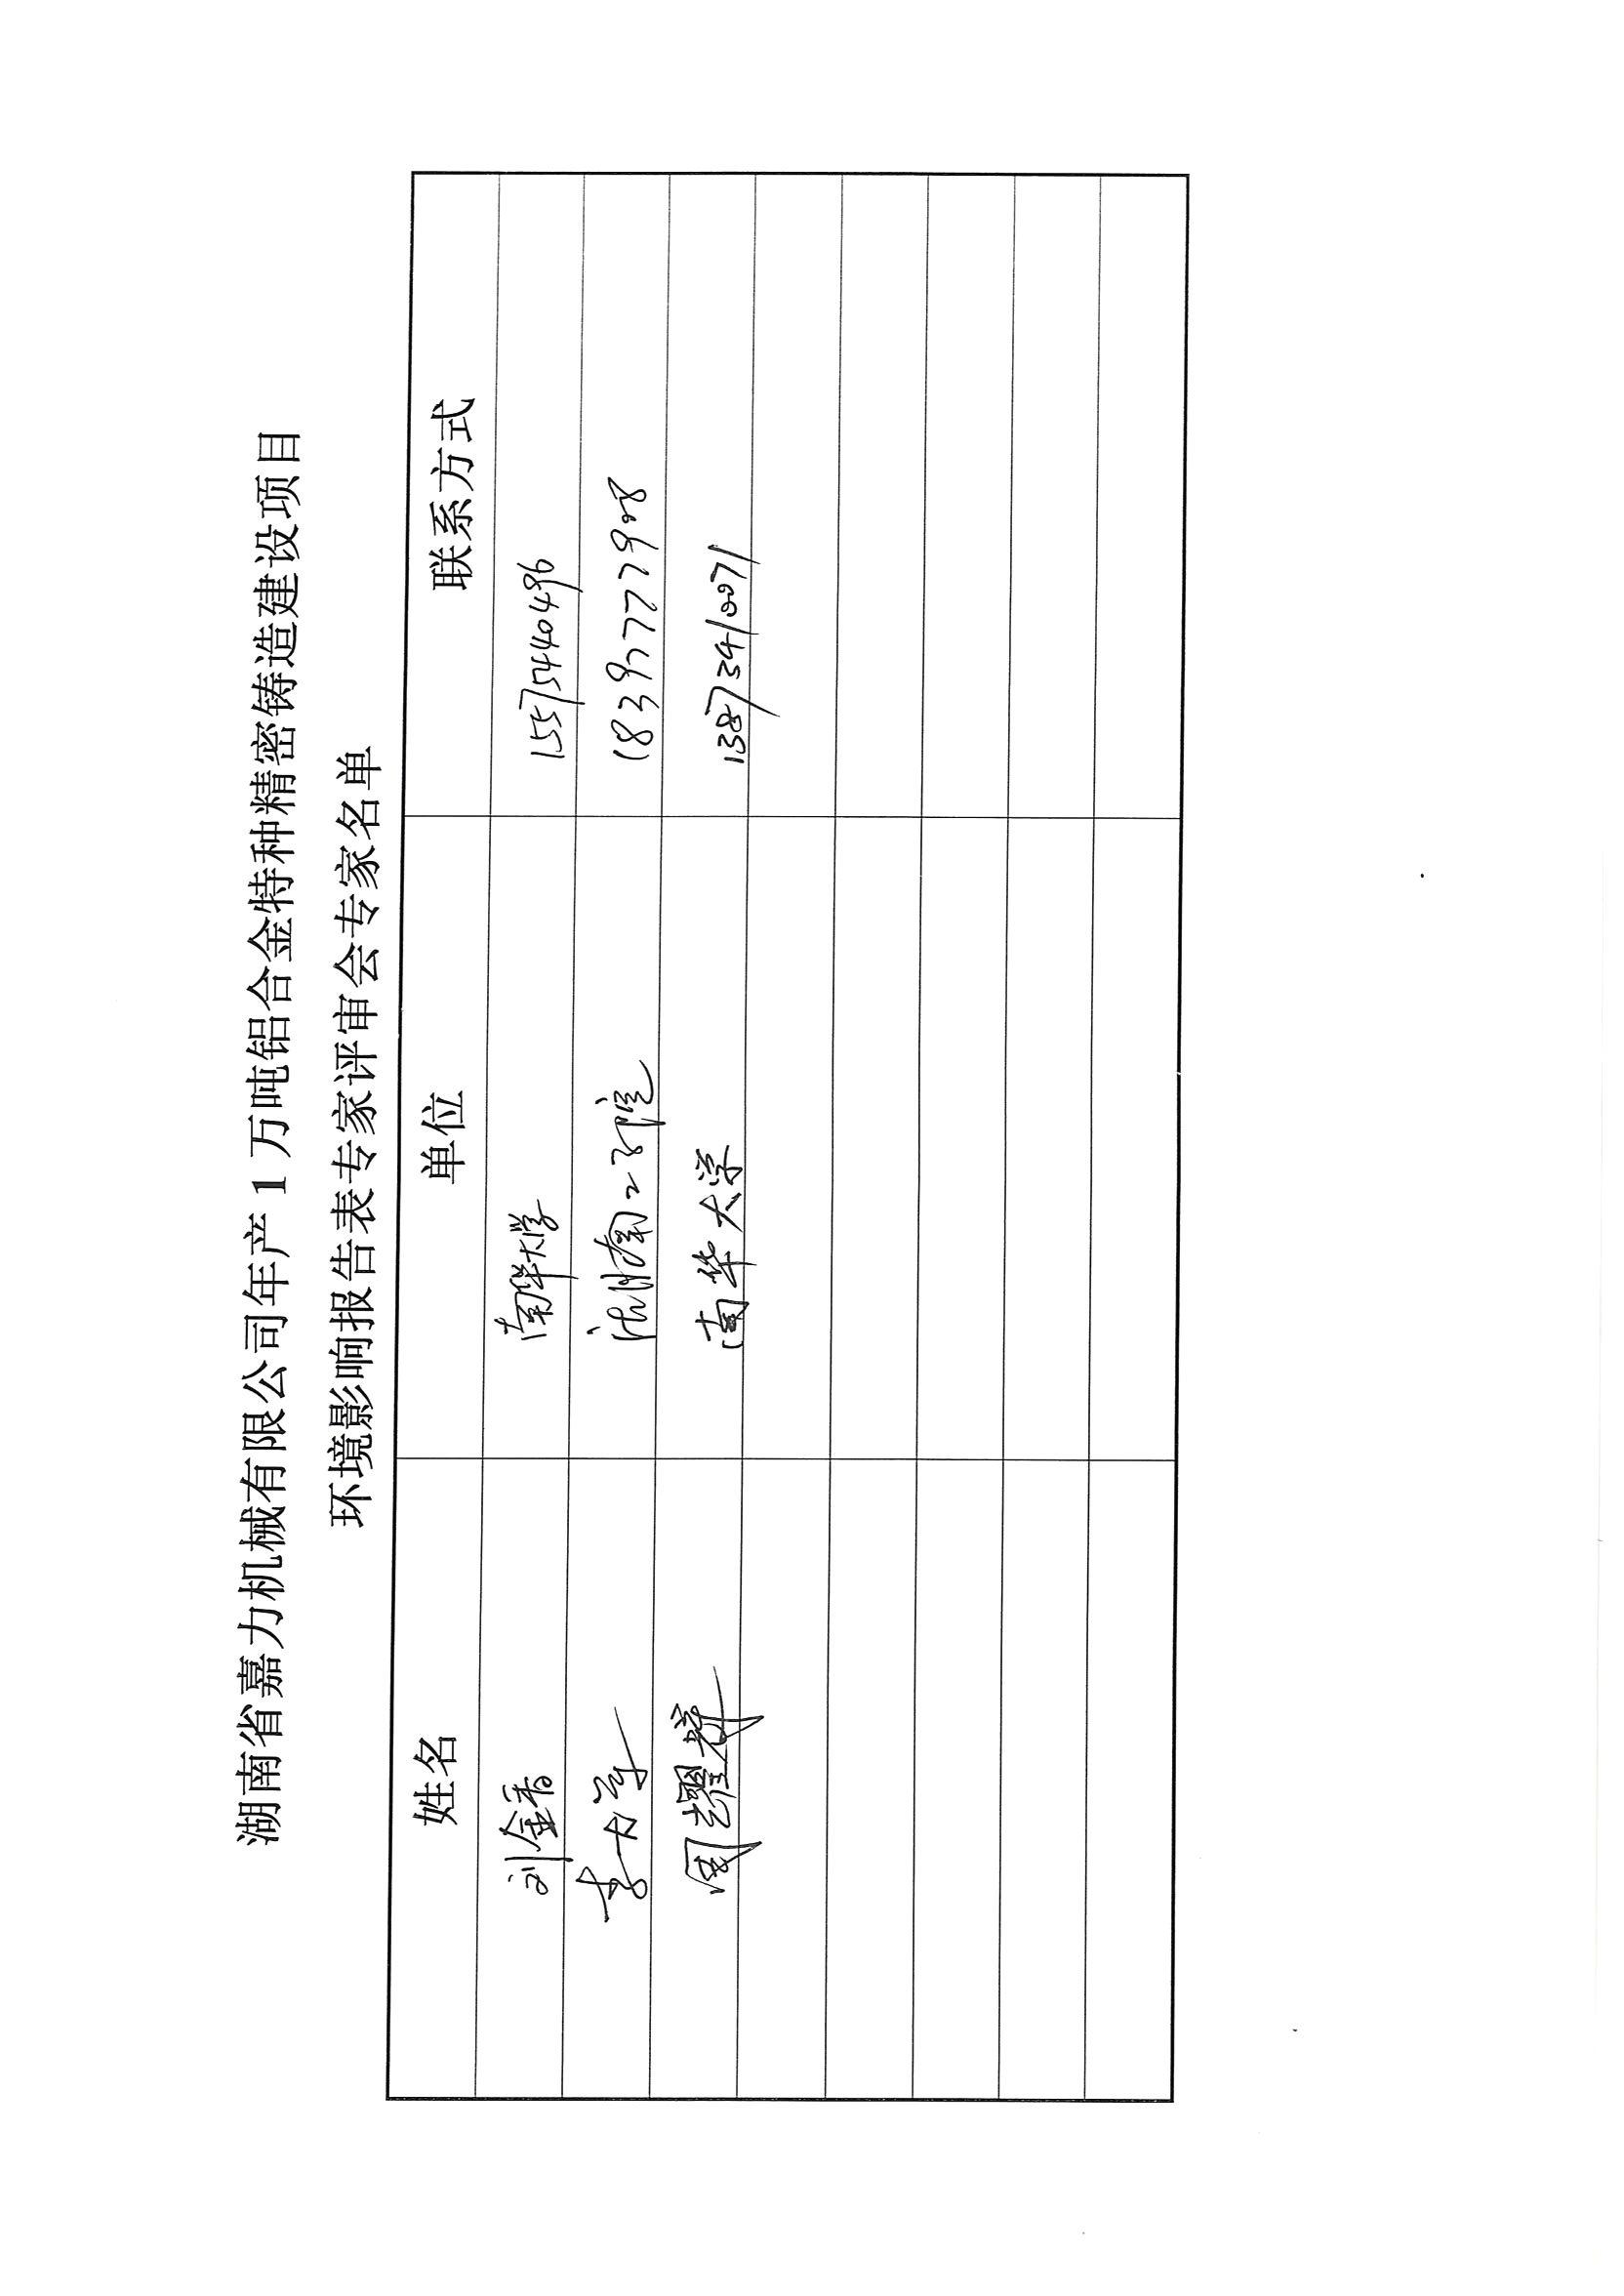 湖南省嘉力机械有限公司年产 1 万吨铝合金特种精密铸造建设项目
环境影响报告表专家评审会专家名单
姓名 单位 联系方式
刘金香 南华大学 15575440496
18397777908
周耀辉 南华大学 13873410071